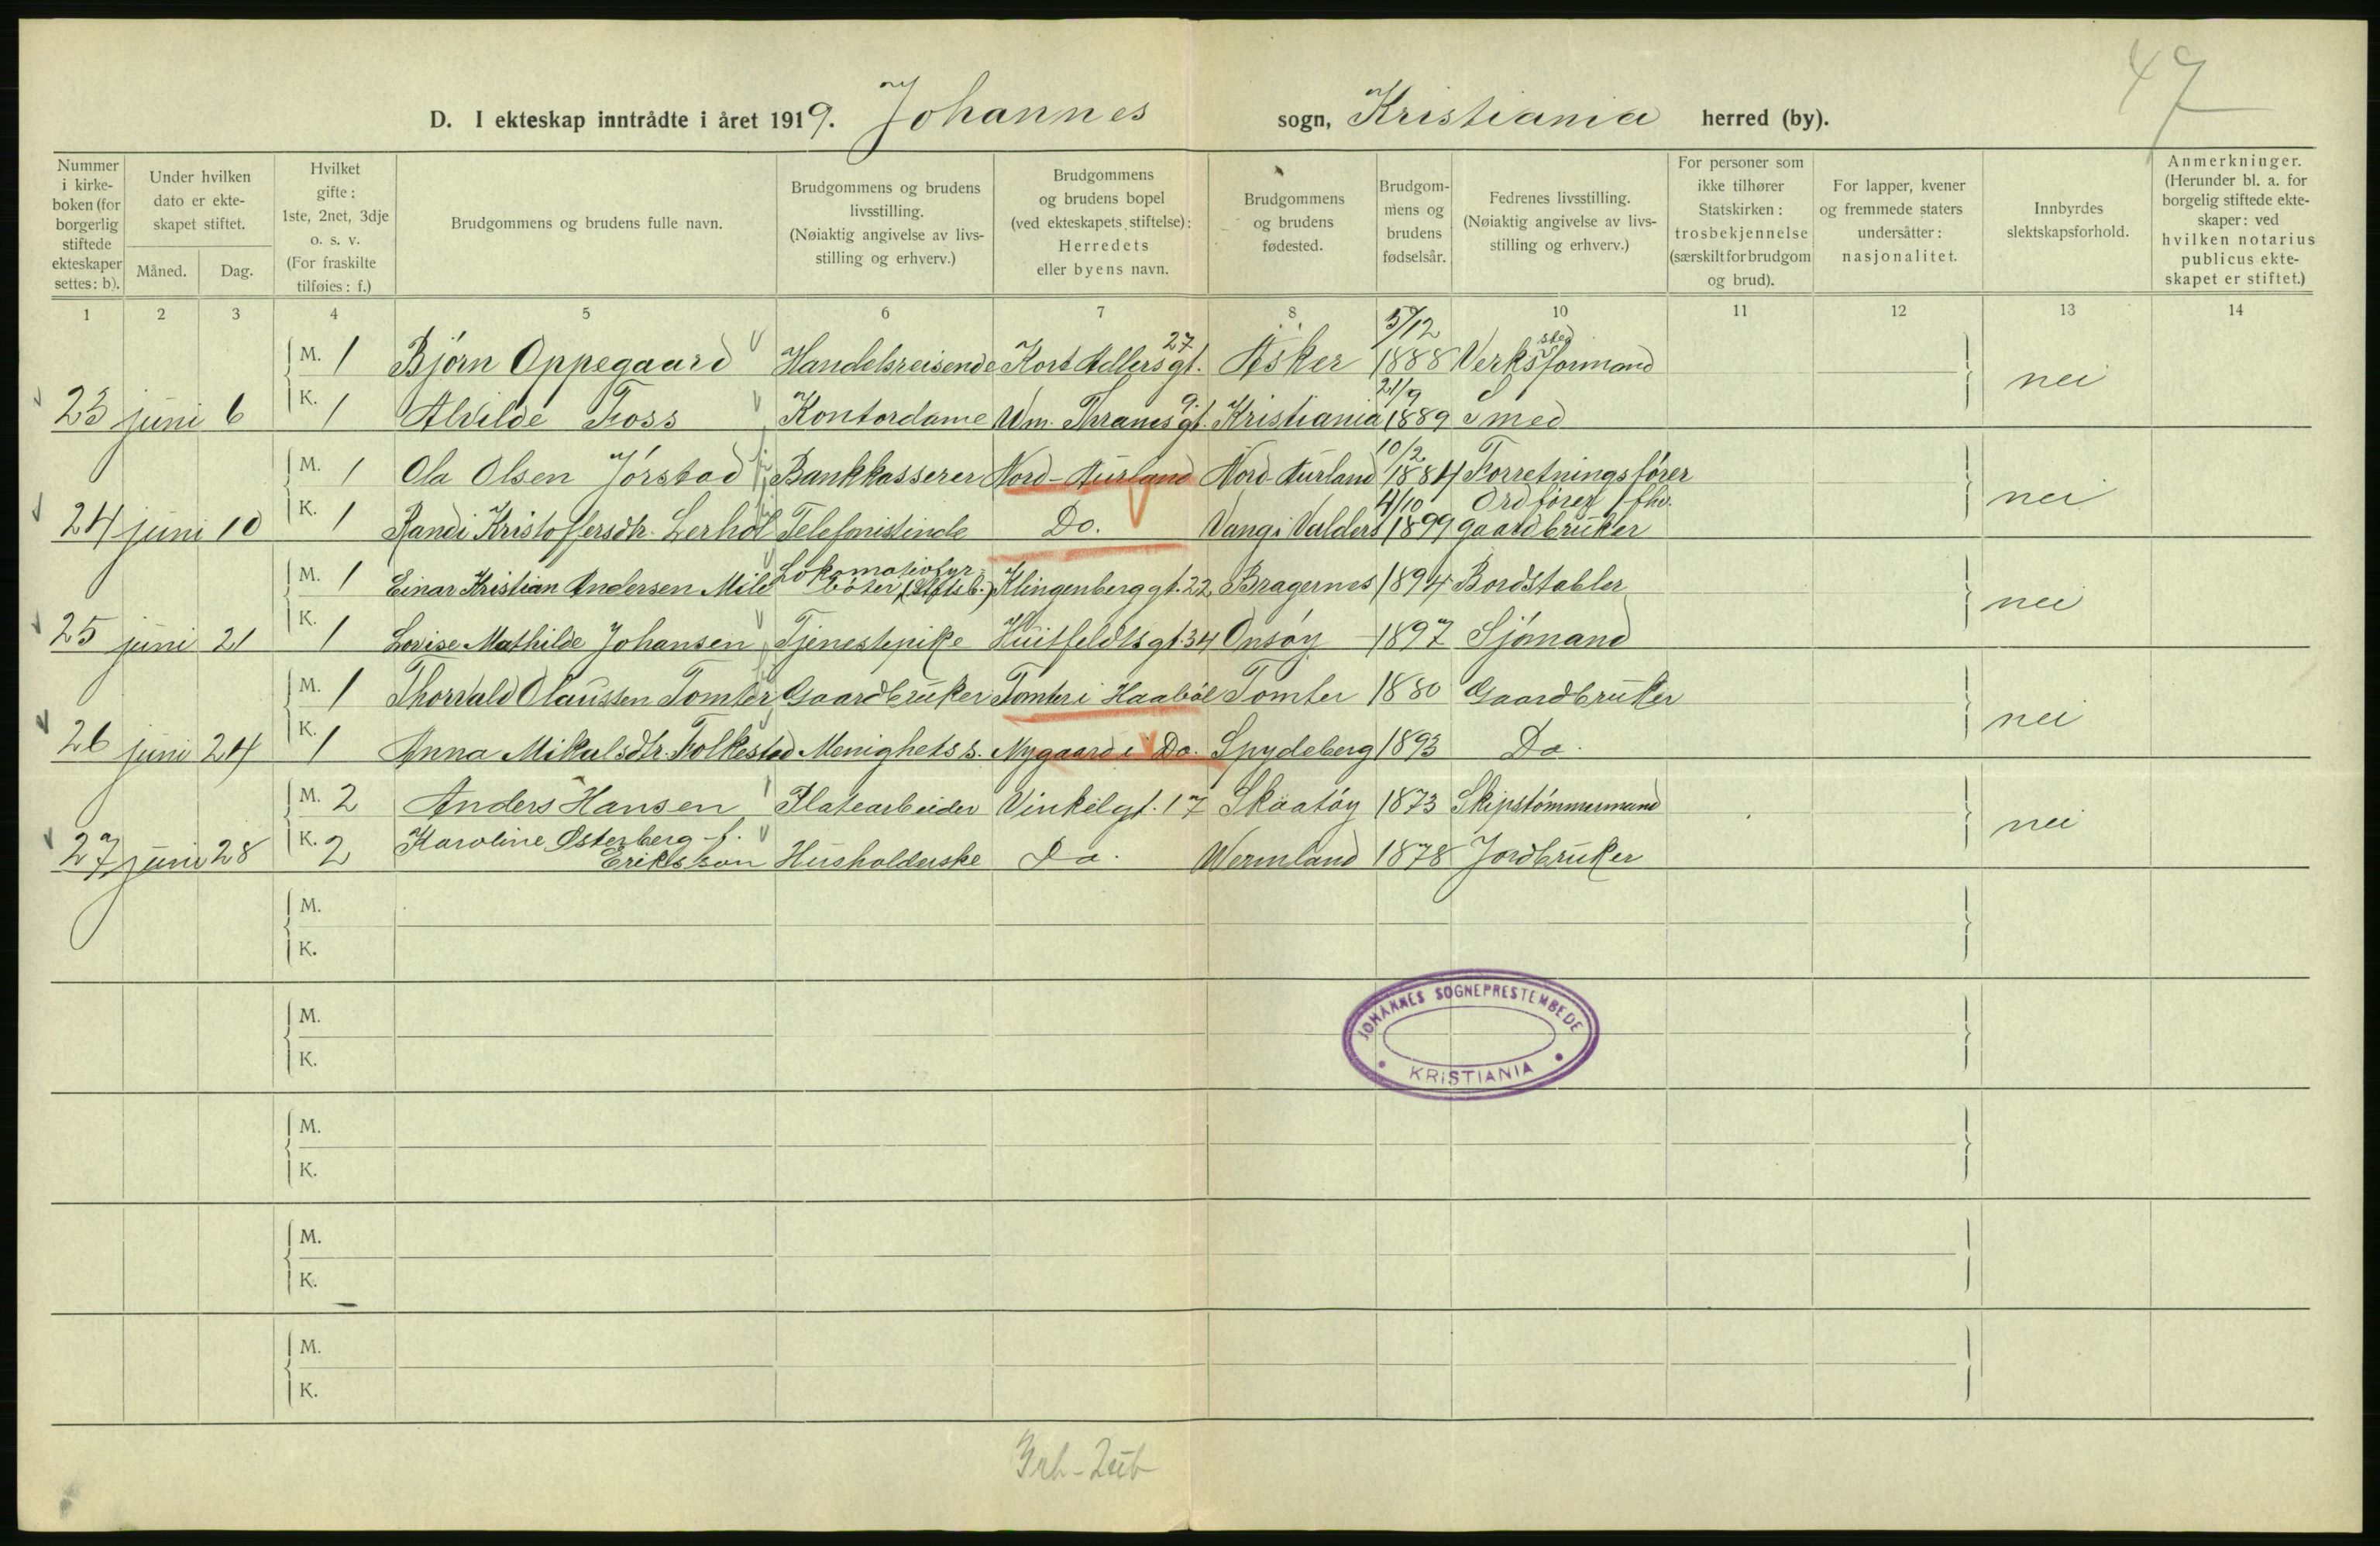 47
D. I ekteskap inntrådte i året 1919. Johannes sogn, Kristiania herred (by).
Nummer i kirke-boken (for borgerlig stiftede ekteskaper settes: b).
Under hvilken dato er ekte-skapet stiftet.
Måned.
Dag.
Hvilket gifte: 1ste, 2net, 3dje o. s. v. (For fraskilte tilføies: f.)
Brudgommens og brudens fulle navn.
Brudgommens og brudens livsstilling. (Nøiaktig angivelse av livs-stilling og erhverv.)
Brudgommens og brudens bopel (ved ekteskapets stiftelse): Herredets eller byens navn.
Brudgommens og brudens fødested.
Brudgom-mens og brudens fødselsår.
Fedrenes livsstilling. (Nøiaktig angivelse av livs-stilling og erhverv.)
For personer som ikke tilhører Statskirken: trosbekjennelse (særskilt for brudgom og brud).
For lapper, kvener og fremmede staters undersåtter: nasjonalitet.
Innbyrdes slektskapsforhold.
Anmerkninger. (Herunder bl. a. for borgelig stiftede ekte-skaper: ved hvilken notarius publicus ekte-skapet er stiftet.)
1 2 3 4 5 6 7 8 10 11 12 13 14
M. 1 Bjørn Oppegaard Handelsreisende Kort Adlers gt. 27 Asker 5/12 1888 Verkstedformand
23 juni 6 K. 1 Alvilde Foss Kontordame Wm. Thranes gt. 9. Kristiania 21/9 1889 Smed nei
M. 1 Ola Olsen Jørstad Bankkasserer Nord-Aurland Nord-Aurland 10/2 1884 Forretningsfører
24 juni 10 K. 1 Randi Kristoffersdtr. Lerhol Telefonistinde Do. Vang i Valders 4/10 1899 Ordfører fhv. gaardbruker nei
M. 1 Einar Kristian Andersen Mild Lokomotivfyrbøter (Statsb.) Klingenberggt. 22 Bragernes 1894 Bordstabler
25 juni 21 K. 1 Lovise Mathilde Johansen Tjenestepike Huitfeldtsgt. 34 Onsøy 1897 Sjømand nei
M. 1 Thorvald Olaussen Tomter Gaardbruker Tomter i Haabøl Tomter 1880 Gaardbruker
26 juni 24 K. 1 Anna Mikalsdtr. Folkestad Menighetss. Nygaard i Do. Spydeberg 1893 Do. nei
M. 2 Anders Hansen Platearbeider Vinkelgt. 17 Skaatøy 1873 Skipstømmermand
27 juni 28 K. 2 Karoline Østerberg f. Eriksson Husholderske Do. Wermland 1878 Jordbruker nei
M.
K.
M.
K.
JOHANNES SOGNEPRESTEMBEDE
KRISTIANIA
M.
K.
M.
K.
M.
K.